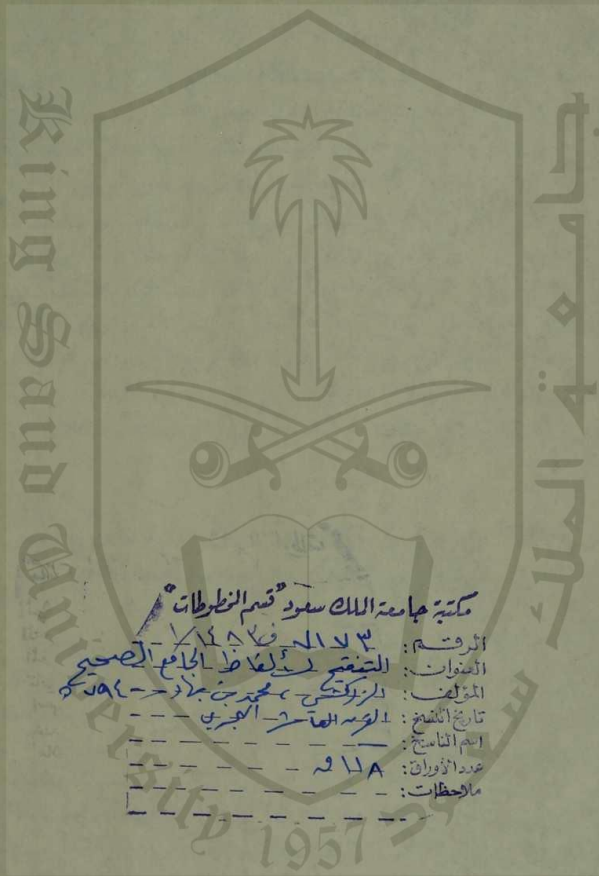 King Saud University
جامعة الملك سعود
1957
مكتبة جامعة الملك سعود "قسم المخطوطات"
الرقم: ٧١٧٣ ف ١/١٤٨٣
العنوان: التنقيح لألفاظ الجامع الصحيح
المؤلف: الزركشي، محمد بن بهادر - ٧٩٤ هـ
تاريخ النسخ: القرن العاشر الهجري
اسم الناسخ:
عدد الأوراق: ١١٨ ق
ملاحظات: